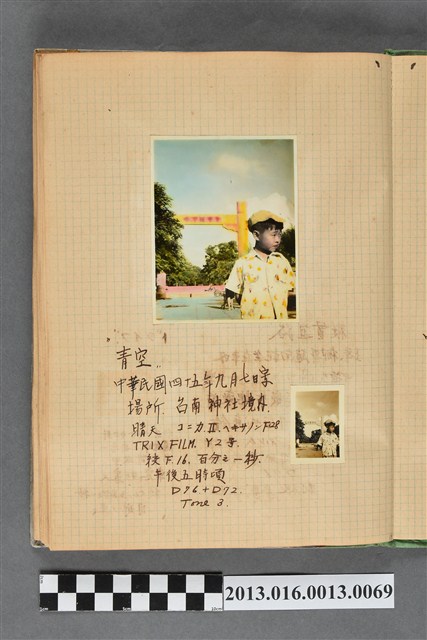 青空..
中華民國四十五年九月七日写
場所 台南神社境內
晴天 コニカⅡ. ヘキサノンF28
TRIX FILM. Y2 号
絞 F.16. 百分之一秒.
午後五時頃
D96 + D92.
Tone 3.
2013.016.0013.0069